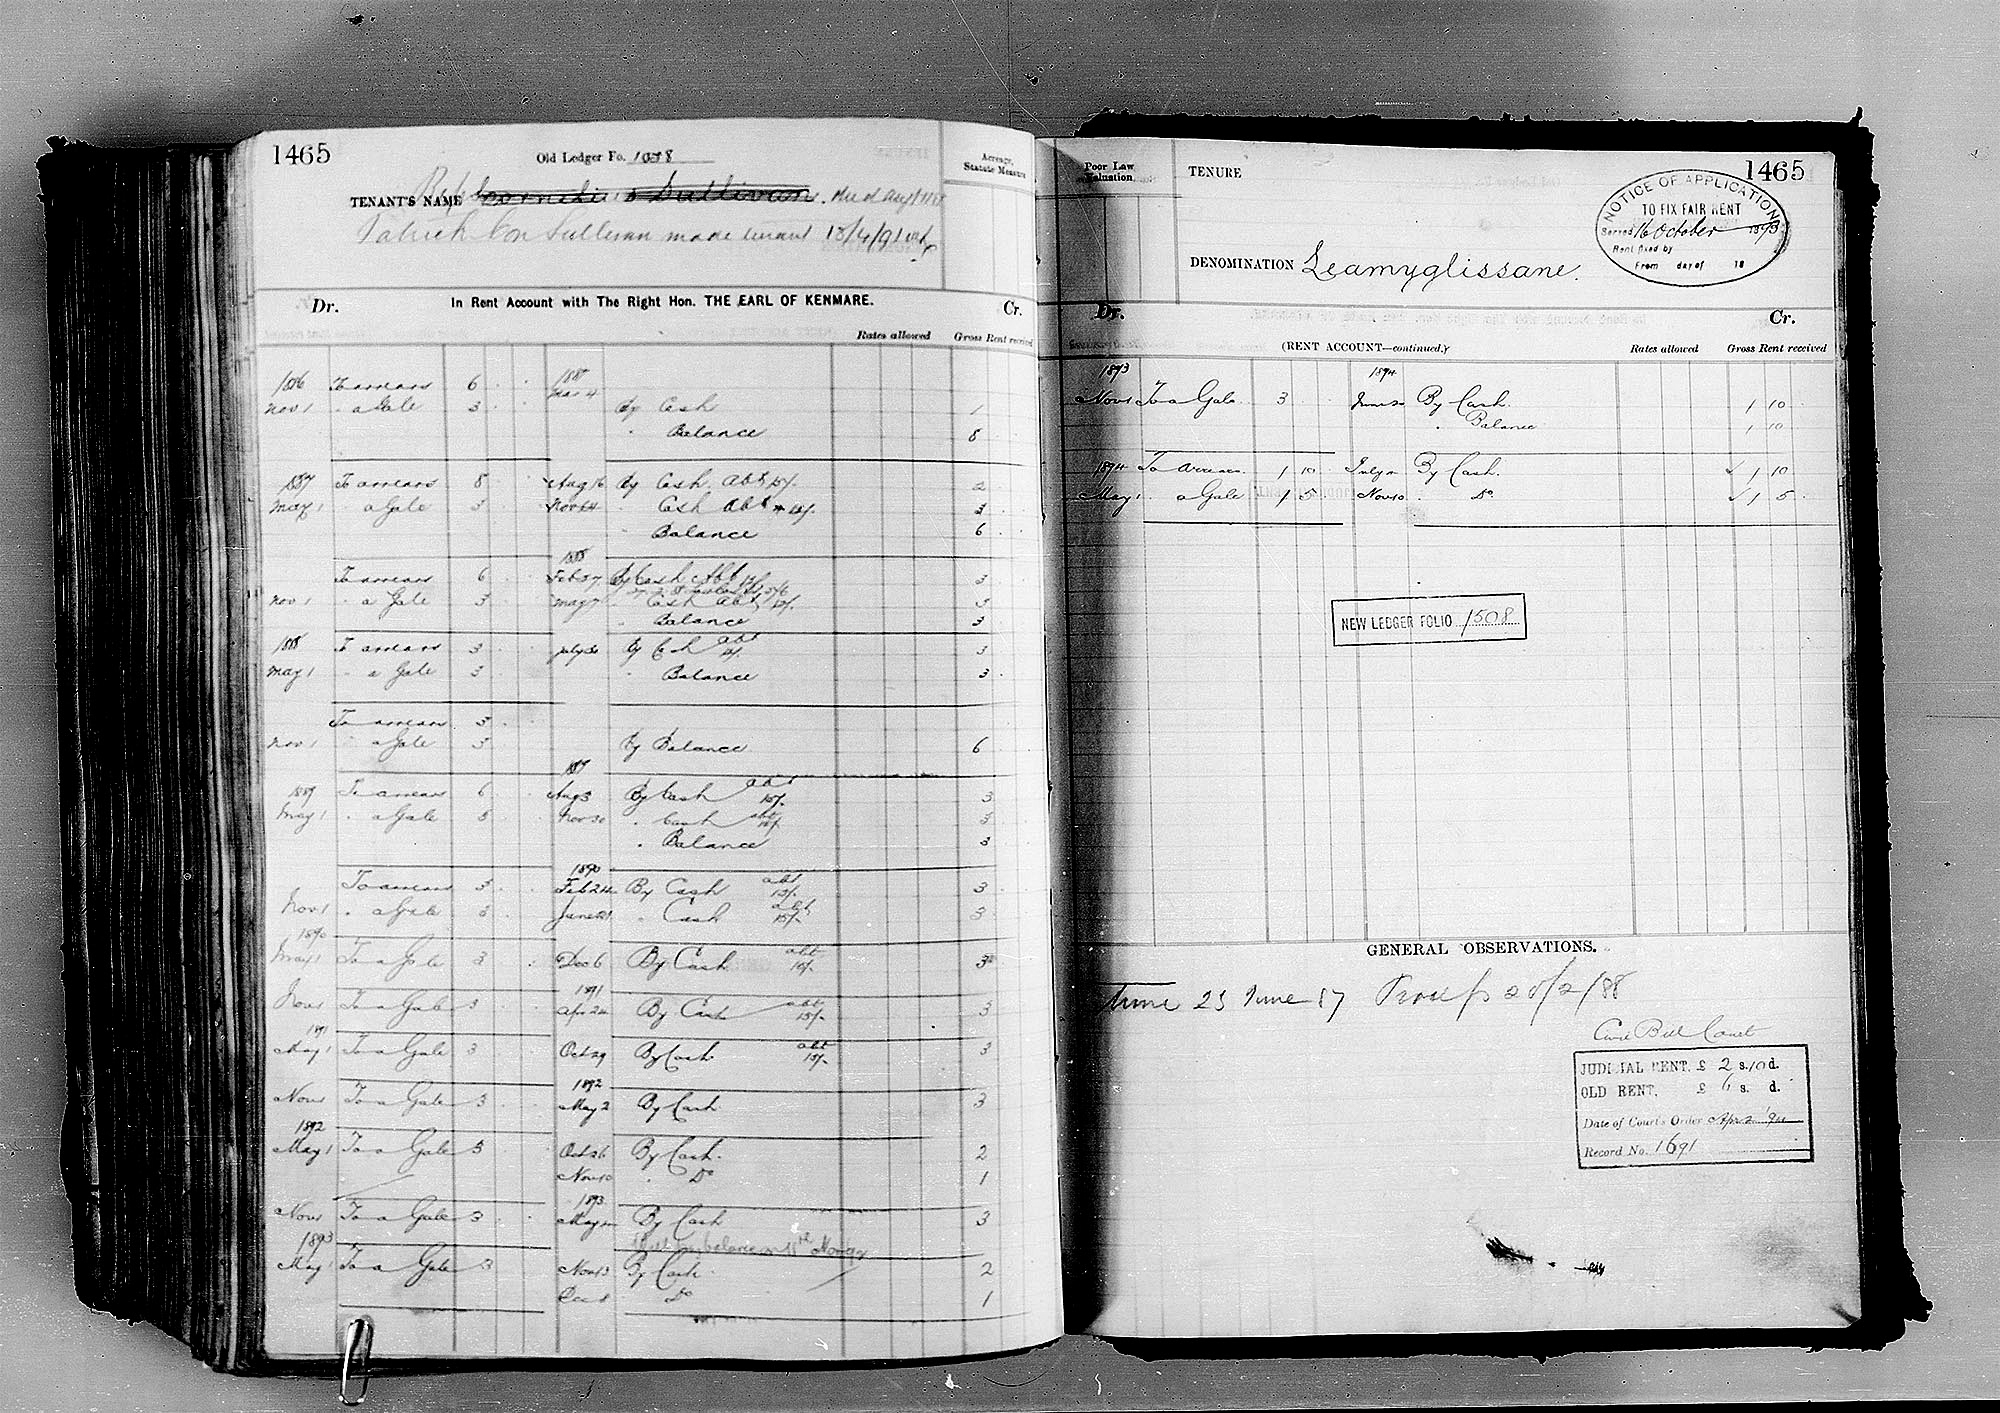 1465
Old Ledger Fo. 1058
Acreage, Statute Measure
TENANT'S NAME Cornelius Sullivan. died Aug
Patrick Con Sullivan made tenant 18/4/91
Dr. In Rent Account with The Right Hon. THE EARL OF KENMARE. Cr.
Rates allowed Gross Rent received
1886 To arrears 6 1887
Nov 1 " a Gale 3 Mar 4 By Cash 1
" Balance 8
1887 To arrears 8 Aug 16 By Cash Abt 2
May 1 " a Gale 3 Nov " Cash Abt 3
" Balance 6
1888
To arrears 6 Feb 27 By Cash Abt 3
Nov 1 " a Gale 3 May 7 " Cash Abt 3
" Balance 3
1888 To arrears 3 July 30 By Cash abt 3
May 1 " a Gale 3 " Balance 3
To arrears 3
Nov 1 " a Gale 3 By Balance 6
1889
1889 To arrears 6 Aug 3 By Cash abt 15/- 3
May 1 " a Gale 3 Nov 30 " Cash abt 15/- 3
" Balance 3
1890
To arrears 3 Feb 24 By Cash abt 15/- 3
Nov 1 " a Gale 3 June 21 " Cash abt 15/- 3
1890
May 1 To a Gale 3 Dec 6 By Cash abt 15/- 3
1891
Nov 1 To a Gale 3 Apr 24 By Cash abt 15/- 3
1891
May 1 To a Gale 3 Oct 29 By Cash abt 15/- 3
1892
Nov 1 To a Gale 3 May 2 By Cash 3
1892
May 1 To a Gale 3 Oct 26 By Cash. 2
Nov 10 " Do 1
1893
Nov 1 To a Gale 3 May By Cash 3
1893
May 1 To a Gale 3 Nov 13 By Cash 2
Dec 8 Do 1
Poor Law Valuation.
TENURE
1465
NOTICE OF APPLICATION
TO FIX FAIR RENT
Served 16 October 1893
Rent fixed by
From day of 18
DENOMINATION Leamyglissane.
Dr. Cr.
(RENT ACCOUNT—continued.)
Rates allowed Gross Rent received
1893 1894
Nov 1 To a Gale 3 June By Cash. 1 10
" Balance 1 10
1894 To arrears 1 10 July By Cash. 1 10
May 1 a Gale 1 5 Nov 10 Do 1 5
NEW LEDGER FOLIO 1508
GENERAL OBSERVATIONS.
23 June 87 20/2/88
Civil Bill Court
JUDICIAL RENT. £ 2 s. 10 d.
OLD RENT. £ 6 s. d.
Date of Court's Order Apr 2 '94
Record No. 1691